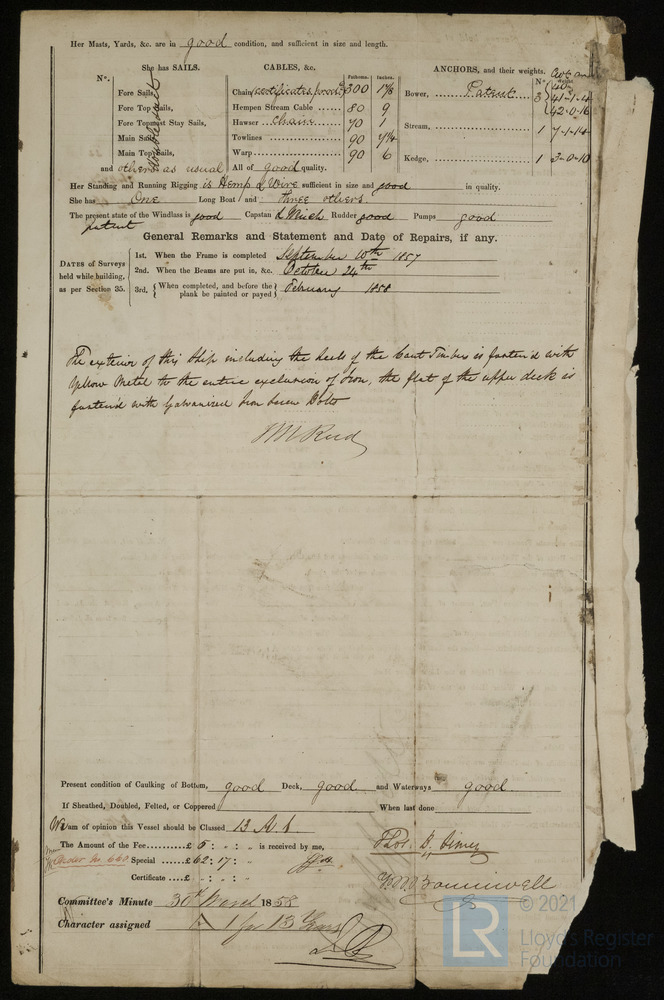 Her Masts, Yards, &c. are in good condition, and sufficient in size and length.
She has SAILS. CABLES, &c. ANCHORS, and their weights.
N°. Fathoms. Inches. N°. Weight.
Fore Sails, Chain 300 Bower, Patent 3
Fore Top Sails, Hempen Stream Cable 80 9 41-1-14
Fore Topmast Stay Sails, Hawser Chain 70 1 42-0-16
Main Sails, Towlines 90 Stream, 1 7-1-14
Main Top Sails, Warp 90 6 Kedge, 1 3-0-10
and others as usual All of good quality.
Her Standing and Running Rigging is Hemp & Wire sufficient in size and good in quality.
She has One Long Boat and three others
The present state of the Windlass is good Capstan & Winch Rudder good Pumps good
patent
General Remarks and Statement and Date of Repairs, if any.
DATES of Surveys held while building, as per Section 35.
1st. When the Frame is completed September 10th 1857
2nd. When the Beams are put in, &c. October 24th
3rd. When completed, and before the plank be painted or payed February 1858
The exterior of this Ship including the heels of the Cant Timbers is fasten'd with
Yellow Metal to the entire exclusion of Iron, the flat of the upper deck is
fasten'd with Galvanized Iron Screw Bolts
Present condition of Caulking of Bottom, good Deck, good and Waterways good
If Sheathed, Doubled, Felted, or Coppered When last done
We am of opinion this Vessel should be Classed 13 A 1
The Amount of the Fee £ 5 : - : - is received by me,
Special £ 62 : 17 : -
Certificate £ - : - : -
Committee's Minute 30th March 1858
Character assigned A 1 for 13 Years
© 2021
LR
Lloyd's Register
Foundation